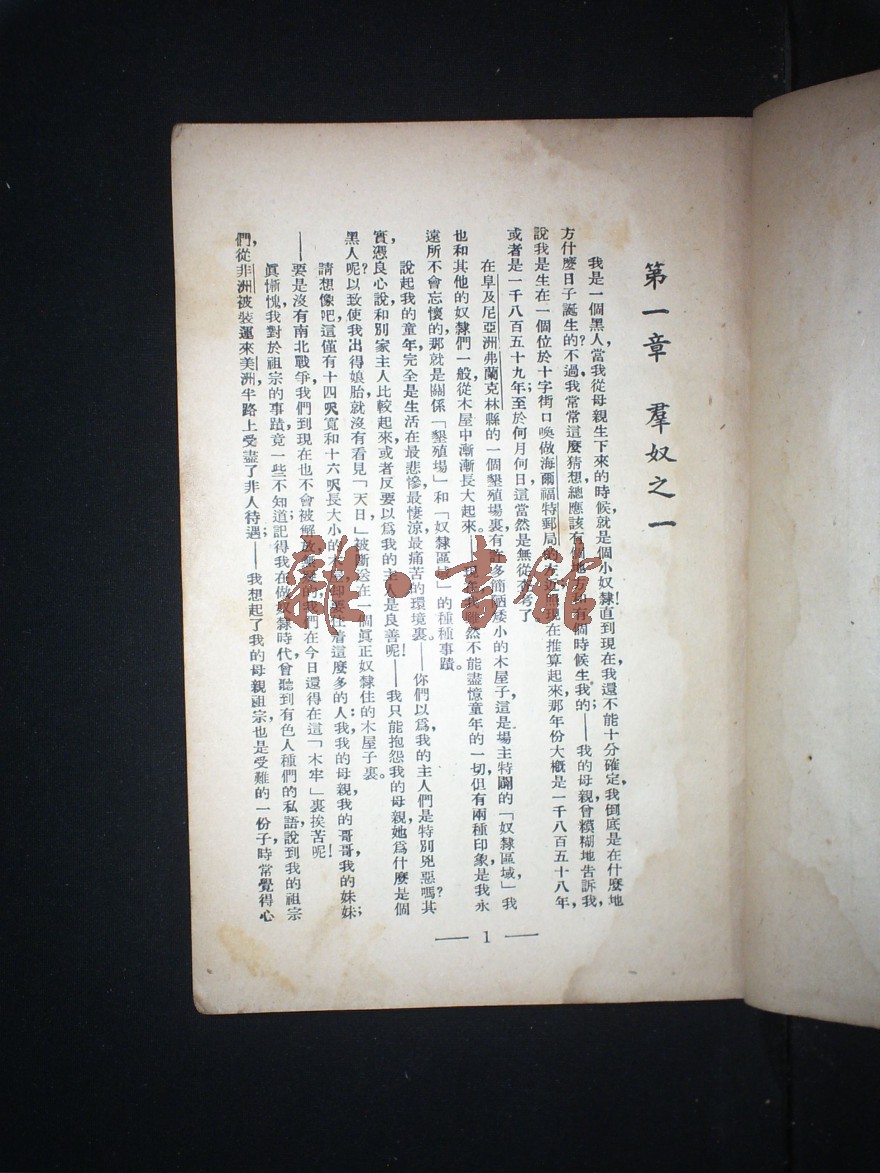 第一章 羣奴之一
我是一個黑人，當我從母親生下來的時候，就是個小奴隸！直到現在，我還不能十分確定，我倒底是在什麼地
方什麼日子誕生的？不過，我常常這麼猜想，總應該有個地方和有個時候生我的——我的母親曾糢糊地告訴我，
說我是生在一個位於十字街口喚做海爾福特郵局的 現在推算起來，那年份大概是一千八百五十八年，
或者是一千八百五十九年；至於何月何日，這當然是無從查考了
在阜及尼亞洲弗蘭克林縣的一個墾殖場裏，有許多簡陋矮小的木屋子，這是場主特闢的「奴隸區域」，我
也和其他的奴隸們一般，從木屋中漸漸長大起來。—— 然不能盡憶童年的一切，但有兩種印象是我永
遠所不會忘懷的，那就是關係「墾殖場」和「奴隸區域」的種種事蹟。
說起我的童年，完全是生活在最悲慘，最悽涼，最痛苦的環境裏。——你們以爲，我的主人們是特別兇惡嗎？其
實，憑良心說，和別家主人比較起來，或者反要以爲我的主人是良善呢！——我只能抱怨我的母親，她爲什麼是個
黑人呢？以致使我出得娘胎，就沒有看見「天日」，被斷送在一個眞正奴隸住的木屋子裏。
請想像吧，這僅有十四呎寬和十六呎長大小的木 却要住着這麼多的人：我，我的母親，我的哥哥，我的妹妹；
——要是沒有南北戰爭，我們到現在也不會被解放， 的，我們在今日還得在這「木牢」裏挨苦呢！
眞慚愧，我對於祖宗的事蹟，竟一些不知道；記得我在做奴隸時代，曾聽到有色人種們的私語，說到我的祖宗
們，從非洲被裝運來美洲，半路上受盡了非人待遇；——我想起了我的母親祖宗，也是受難的一份子，時常覺得心
— 1 —
雜·書館